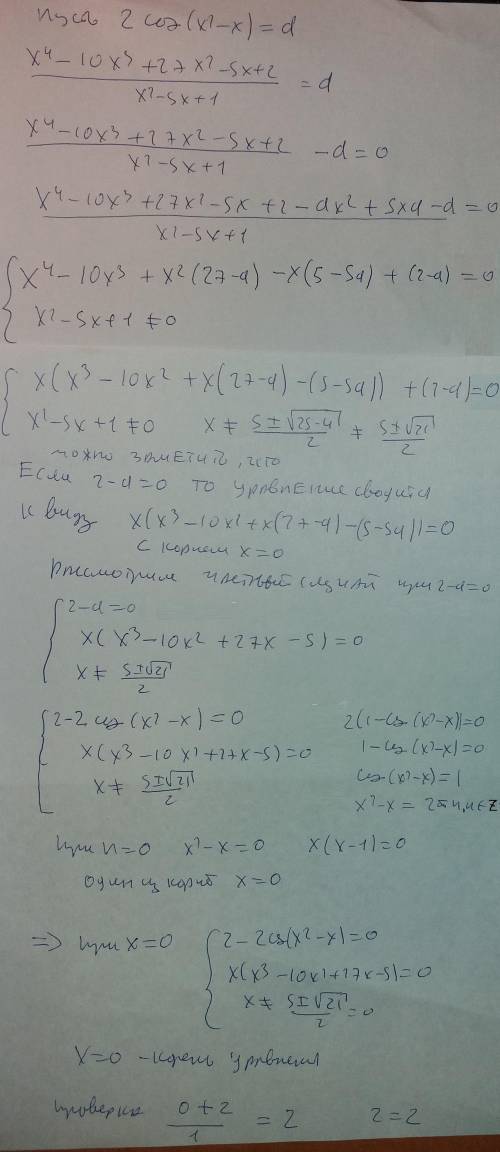 Пусть 2 cos(x²-x) = d
x⁴ - 10x³ + 27x² - 5x + 2 / x² - 5x + 1 = d
x⁴ - 10x³ + 27x² - 5x + 2 / x² - 5x + 1 - d = 0
x⁴ - 10x³ + 27x² - 5x + 2 - dx² + 5xd - d = 0 / x² - 5x + 1
{ x⁴ - 10x³ + x²(27-d) - x(5-5d) + (2-d) = 0
x² - 5x + 1 ≠ 0
{ x(x³ - 10x² + x(27-d) - (5-5d)) + (2-d) = 0
x² - 5x + 1 ≠ 0 x ≠ 5±√25-4 / 2 ≠ 5±√21 / 2
можно заметить, что
Если 2-d=0 то уравнение сводится
к виду x(x³ - 10x² + x(27-d) - (5-5d)) = 0
с корнем x=0
Рассмотрим частный случай при 2-d=0
{ 2-d=0
x(x³ - 10x² + 27x - 5) = 0
x ≠ 5±√21 / 2
{ 2-2cos(x²-x) = 0 2(1-cos(x²-x))=0
x(x³ - 10x² + 27x - 5) = 0 1-cos(x²-x)=0
x ≠ 5±√21 / 2 cos(x²-x)=1
x²-x = 2πn, n∈Z
при n=0 x²-x=0 x(x-1)=0
один из корней x=0
=> при x=0 { 2-2cos(x²-x)=0
x(x³ - 10x² + 27x - 5) = 0
x ≠ 5±√21 / 2 = 0
x=0 - корень уравнения
проверка 0+2 / 1 = 2 2=2